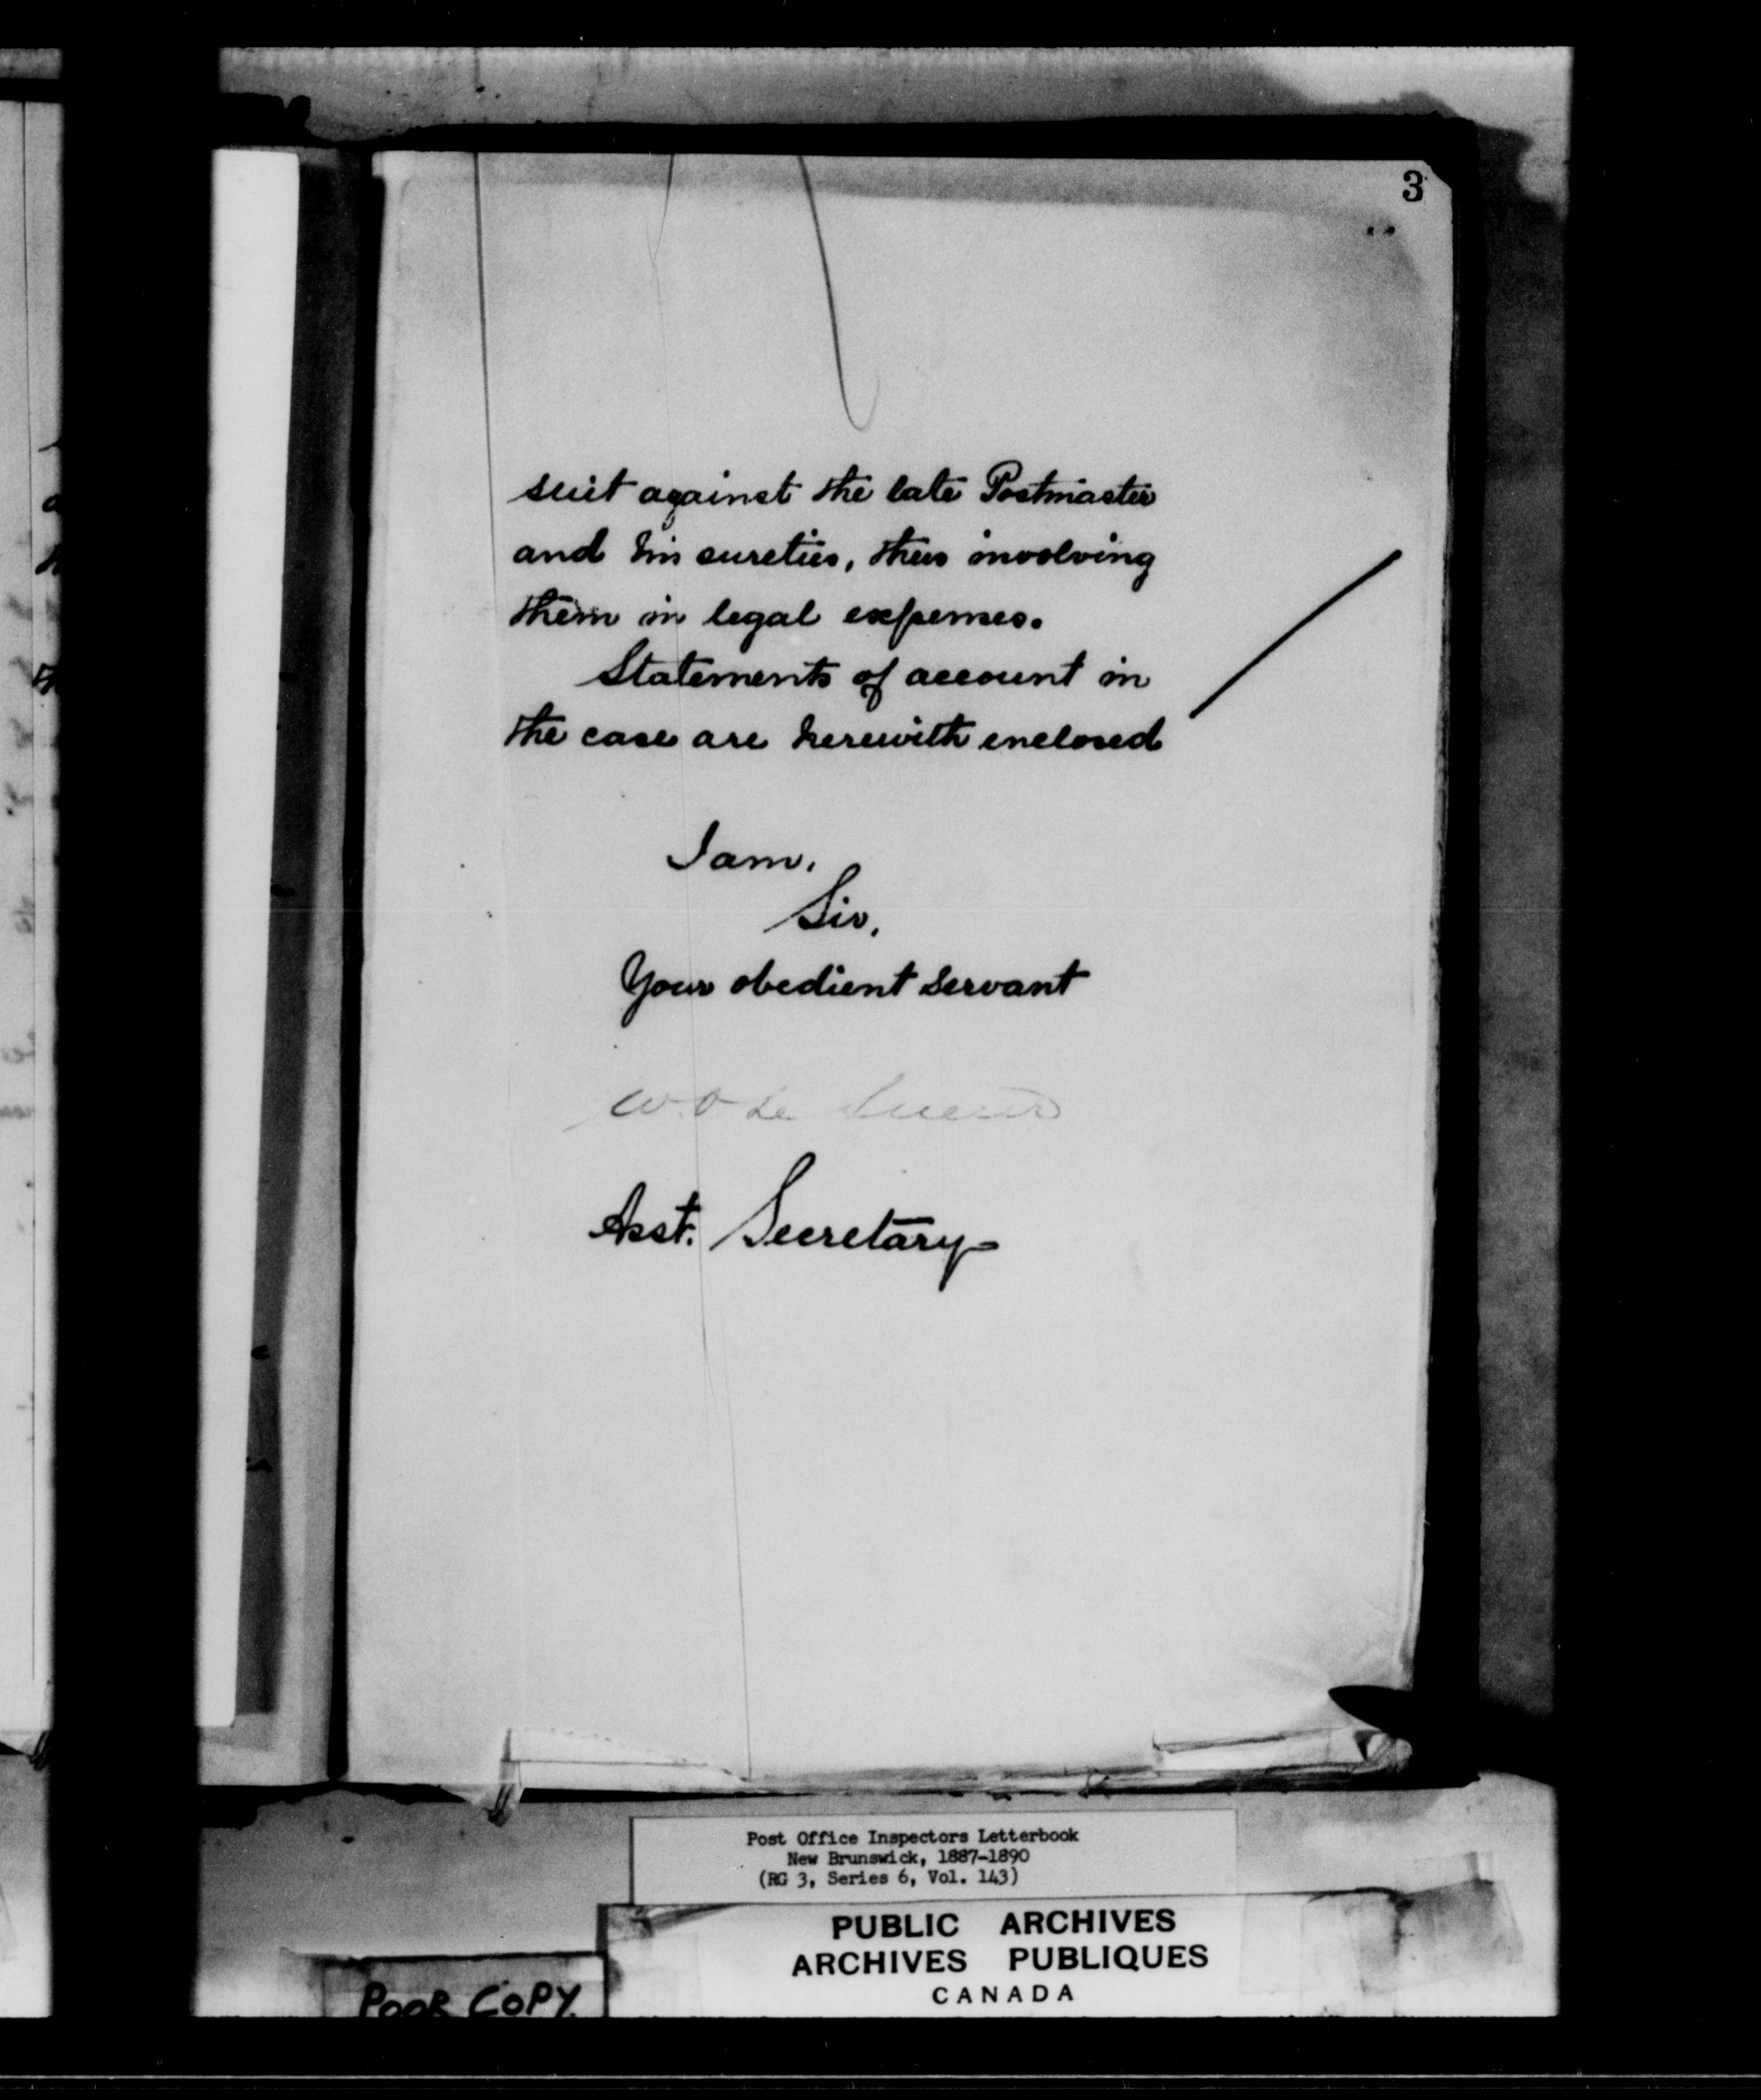 3
suit against the late Postmaster
and his sureties, thus involving
them in legal expenses.
Statements of account in
the case are herewith enclosed
I am,
Sir,
Your obedient servant
W. D. Le Sueur
Asst. Secretary
Post Office Inspectors Letterbook
New Brunswick, 1887-1890
(RG 3, Series 6, Vol. 143)
PUBLIC ARCHIVES
ARCHIVES PUBLIQUES
CANADA
POOR COPY